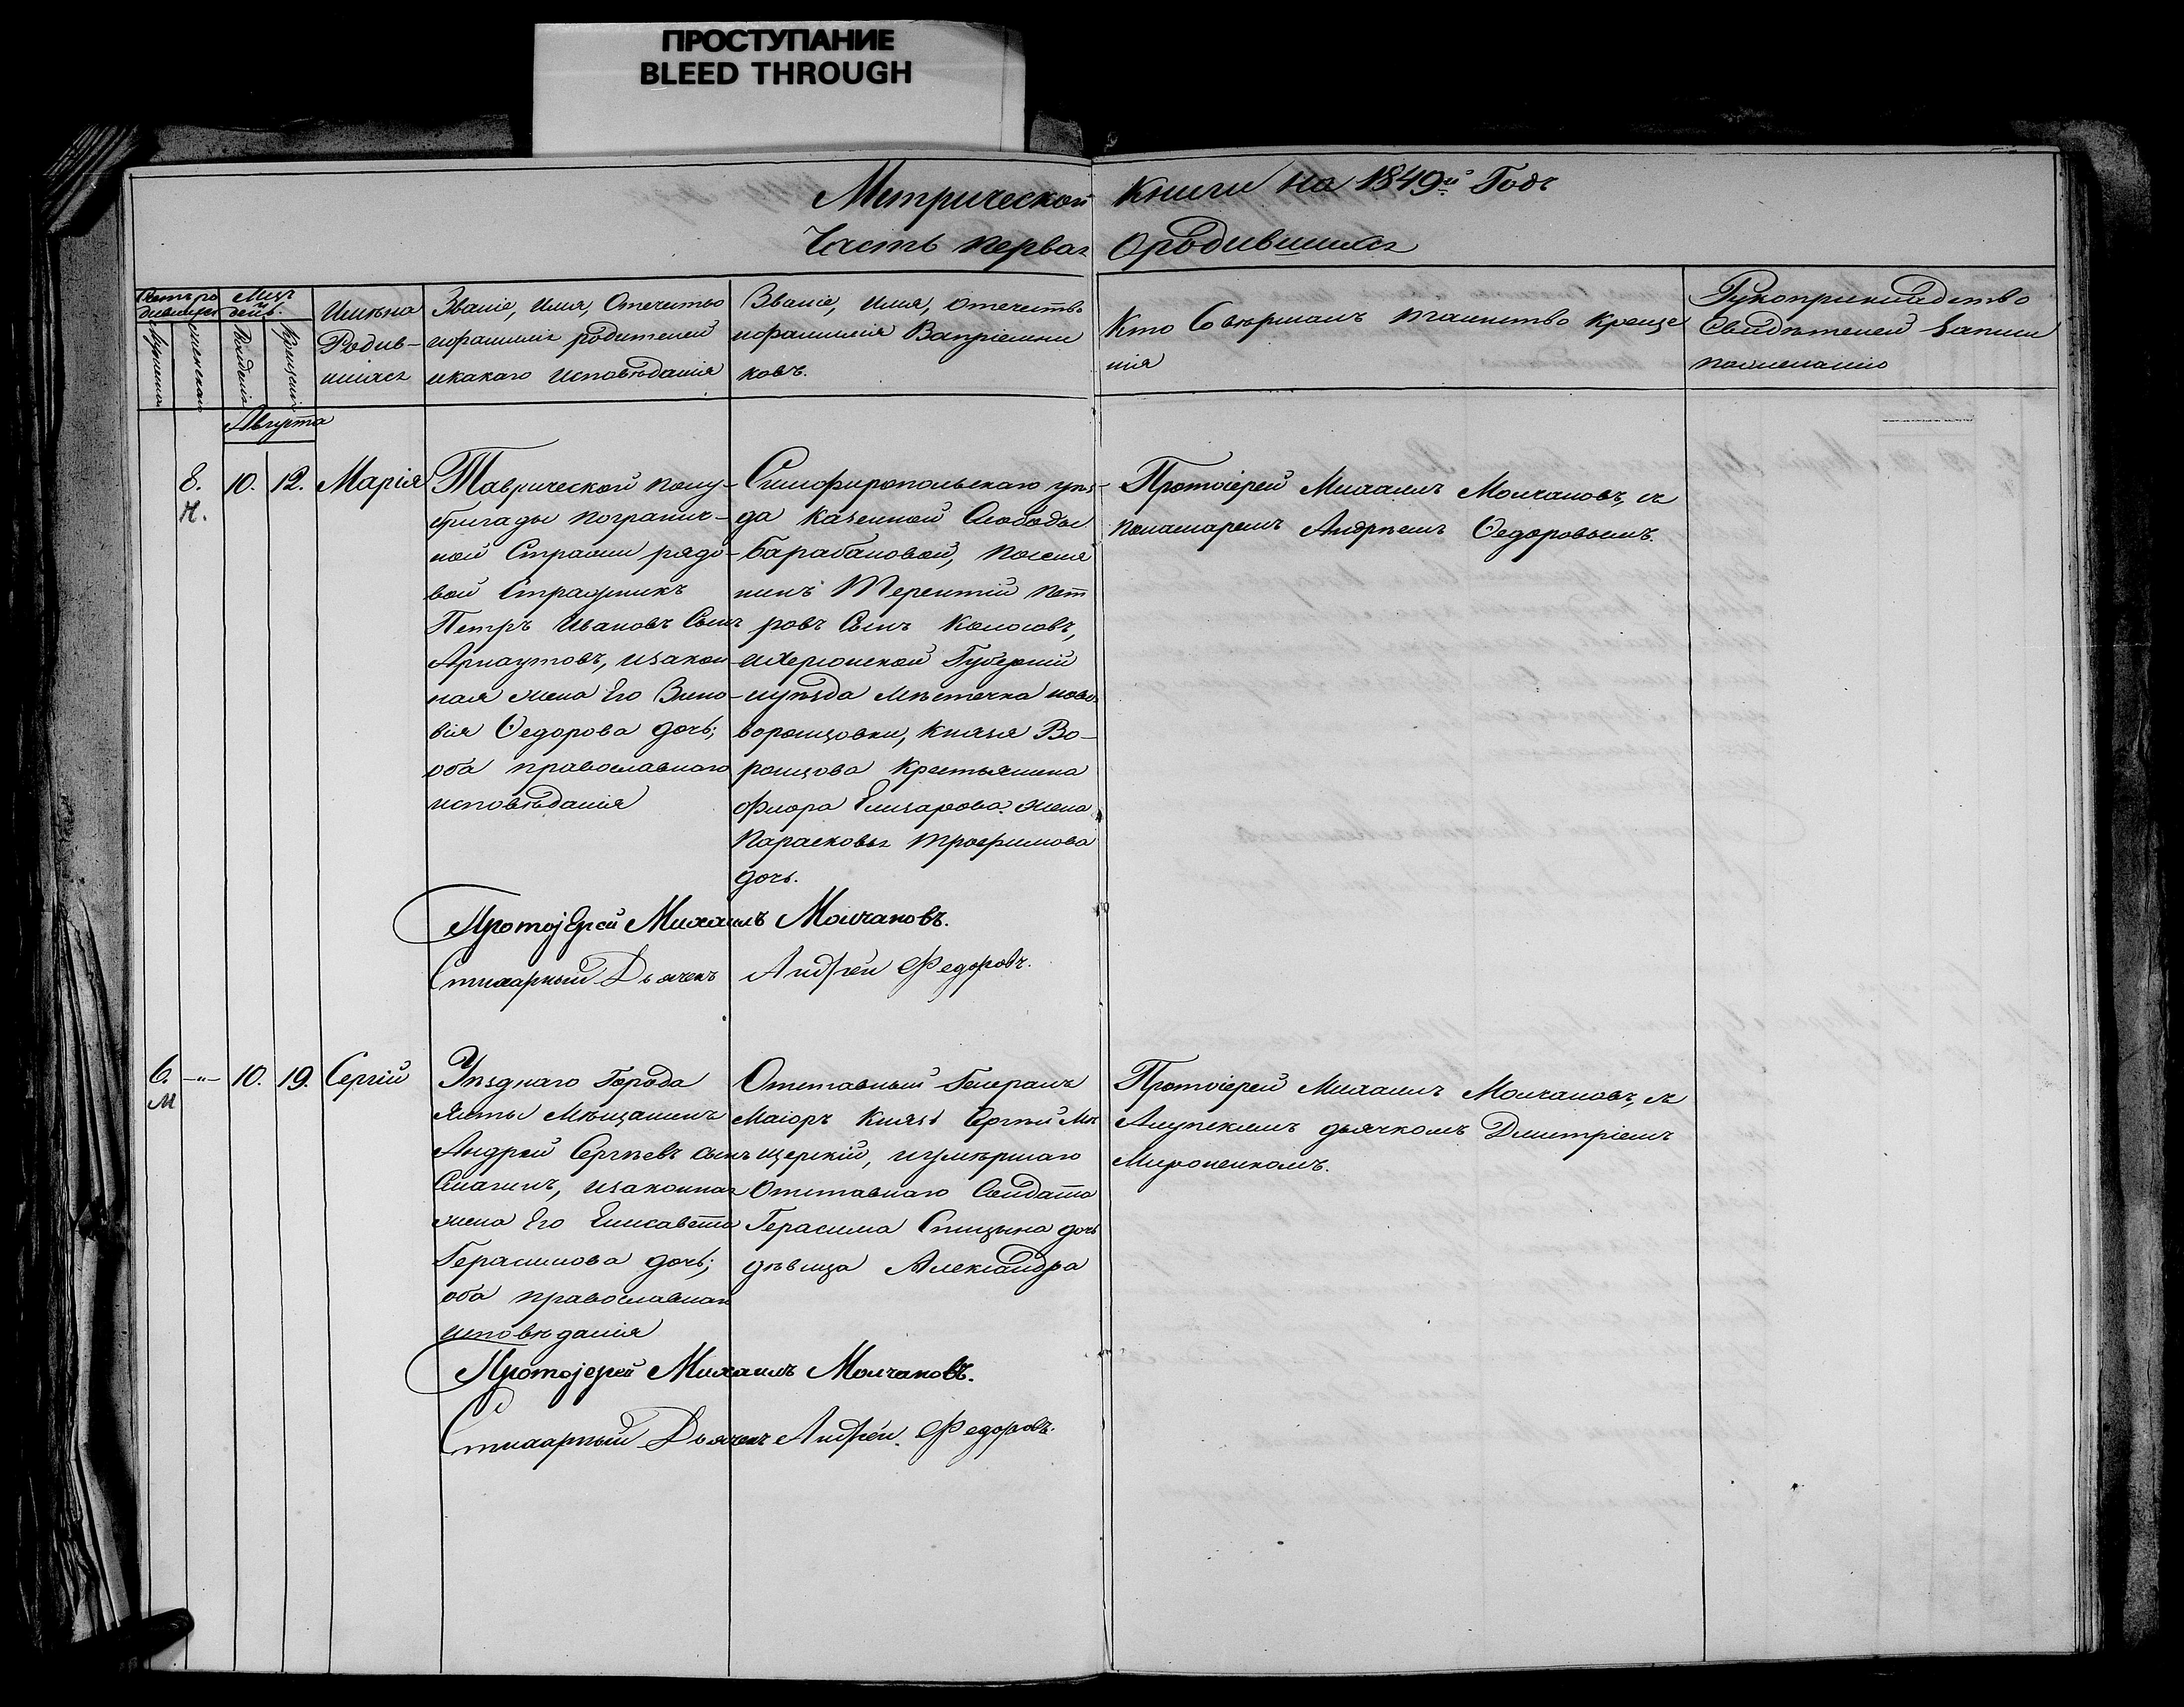 ПРОСТУПАНИЕ
BLEED THROUGH
Метрической Книги на 1849й Годъ
Часть первая О родившихся
Счетъ родившихся
Мужеска
женска
Мцъ и день.
Рожденія
Крещенія
Имена
Родив-
шихся
Званіе, Имя, Отечество
и фамилія родителей
и какаго исповѣданія
Званіе, имя, отечество
и фамилія Вапріемни
ковъ.
Кто Совѣршалъ таинство Креще
нія
Рукоприкладство
Свидѣтелей Записи
пожеланію
Августа
8.
Ж.
10.
12.
Марія
Таврической полу-
бригады погранич-
ной Стражи рядо-
вой Стражникъ
Петръ Ивановъ Сынъ
Арнаутовъ, и закон
ная жена Его Зино-
вія Ѳедорова дочь;
оба православнаго
исповѣданія
Симферопольскаго уѣз-
да Казенной Слободы
Барабановой, поселя
нинъ Терентій Пет
ровъ Сынъ Колосовъ,
и Херсонской Губерніи
и уѣзда мѣстечка ново-
воронцовки, Князя Во-
ронцова Крестьянина
Флора Елизарова жена
Парасковья трофимова
дочь.
Протоіерей Михаилъ Молчановъ, съ
пономаремъ Андрѣемъ Ѳедоровымъ.
Протоjерей Михаилъ Молчановъ.
Стихарный Дьячекъ Андрей Федоровъ.
6.
М
-"-
10.
19.
Сергій
Уѣзднаго Города
Ялты Мѣщанинъ
Андрей Сергѣевъ сынъ
Смагинъ, и законная
жена Его Елисавета
Герасимова дочь;
оба православнаго
исповѣданія
Отставный Генералъ
Маіоръ Князь Сергѣй Ме
щерскій, и умѣршаго
Отставнаго Солдата
Герасима Спицына дочь
дѣвица Александра
Протоіерей Михаилъ Молчановъ, съ
Алупскимъ дьячкомъ Дмитріемъ
Мироненкомъ.
Протоjерей Михаилъ Молчановъ.
Стихарный Дьячекъ Андрей Федоровъ.